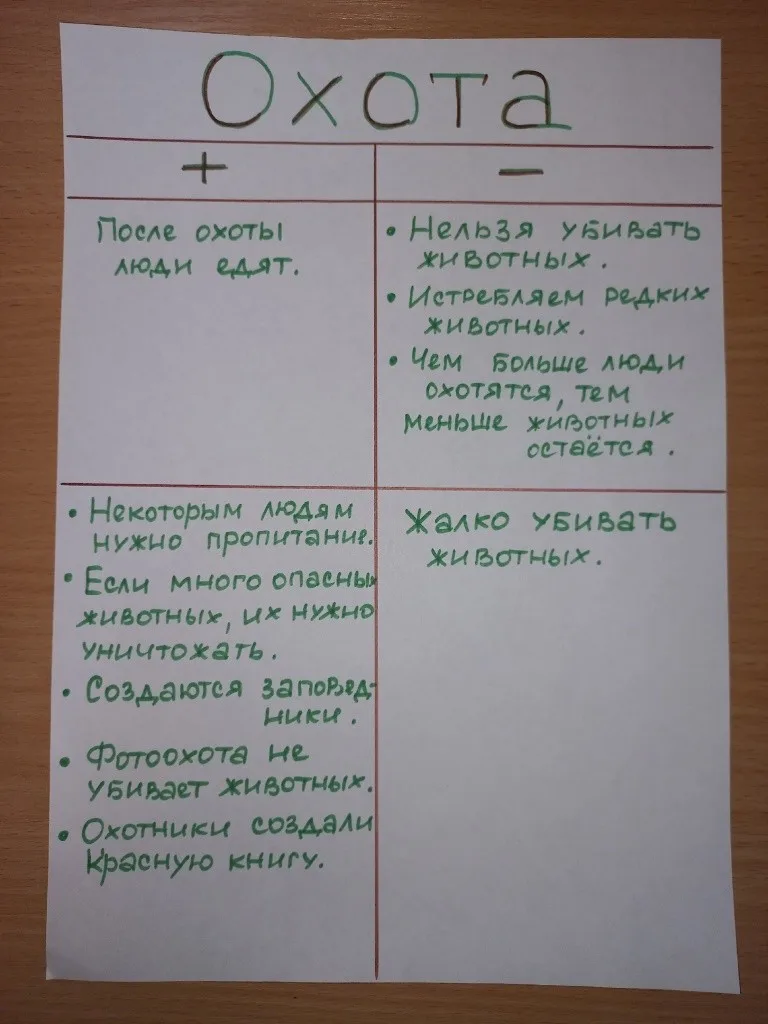 Охота
+ −
После охоты
люди едят.
• Нельзя убивать
животных.
• Истребляем редких
животных.
• Чем больше люди
охотятся, тем
меньше животных
остаётся.
• Некоторым людям
нужно пропитание.
• Если много опасных
животных, их нужно
уничтожать.
• Создаются заповед-
ники.
• Фотоохота не
убивает животных.
• Охотники создали
Красную книгу.
Жалко убивать
животных.